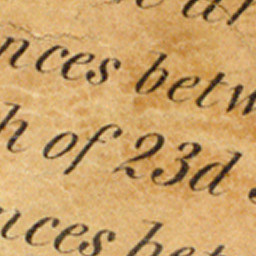 nces betw
h of 23d
nces bet